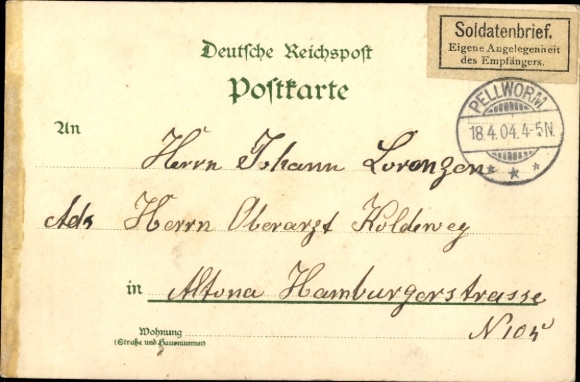 Soldatenbrief.
Eigene Angelegenheit
des Empfängers.
Deutsche Reichspost
Postkarte
PELLWORM
18.4.04.4-5N.
An
Herrn Johann Lorenzen
Adr Herrn Oberarzt Koldeweg
in Altona Hamburgerstrasse
Wohnung
(Straße und Hausnummer)
N 105